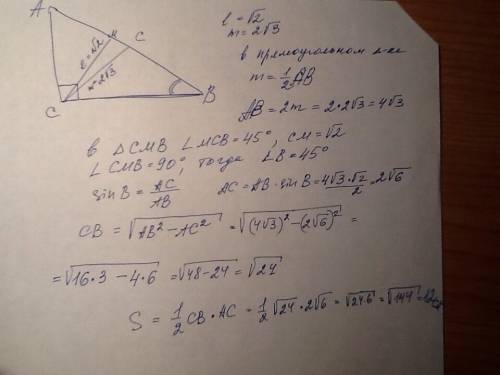 A
M
C
ℓ=√2
m=2√3
C
B
ℓ = √2
m = 2√3
в прямоугольном
m = 1/2 AB
AB = 2m = 2·2√3 = 4√3
в △CMB ∠MCB = 45°, CM = √2
∠CMB = 90°, тогда ∠B = 45°
sin B = AC/AB AC = AB·sin B = 4√3·√2/2 = 2√6
CB = √(AB² − AC²) = √((4√3)² − (2√6)²) =
= √(16·3 − 4·6) = √(48−24) = √24
S = 1/2 CB·AC = 1/2 √24·2√6 = √(24·6) = √144 = 12